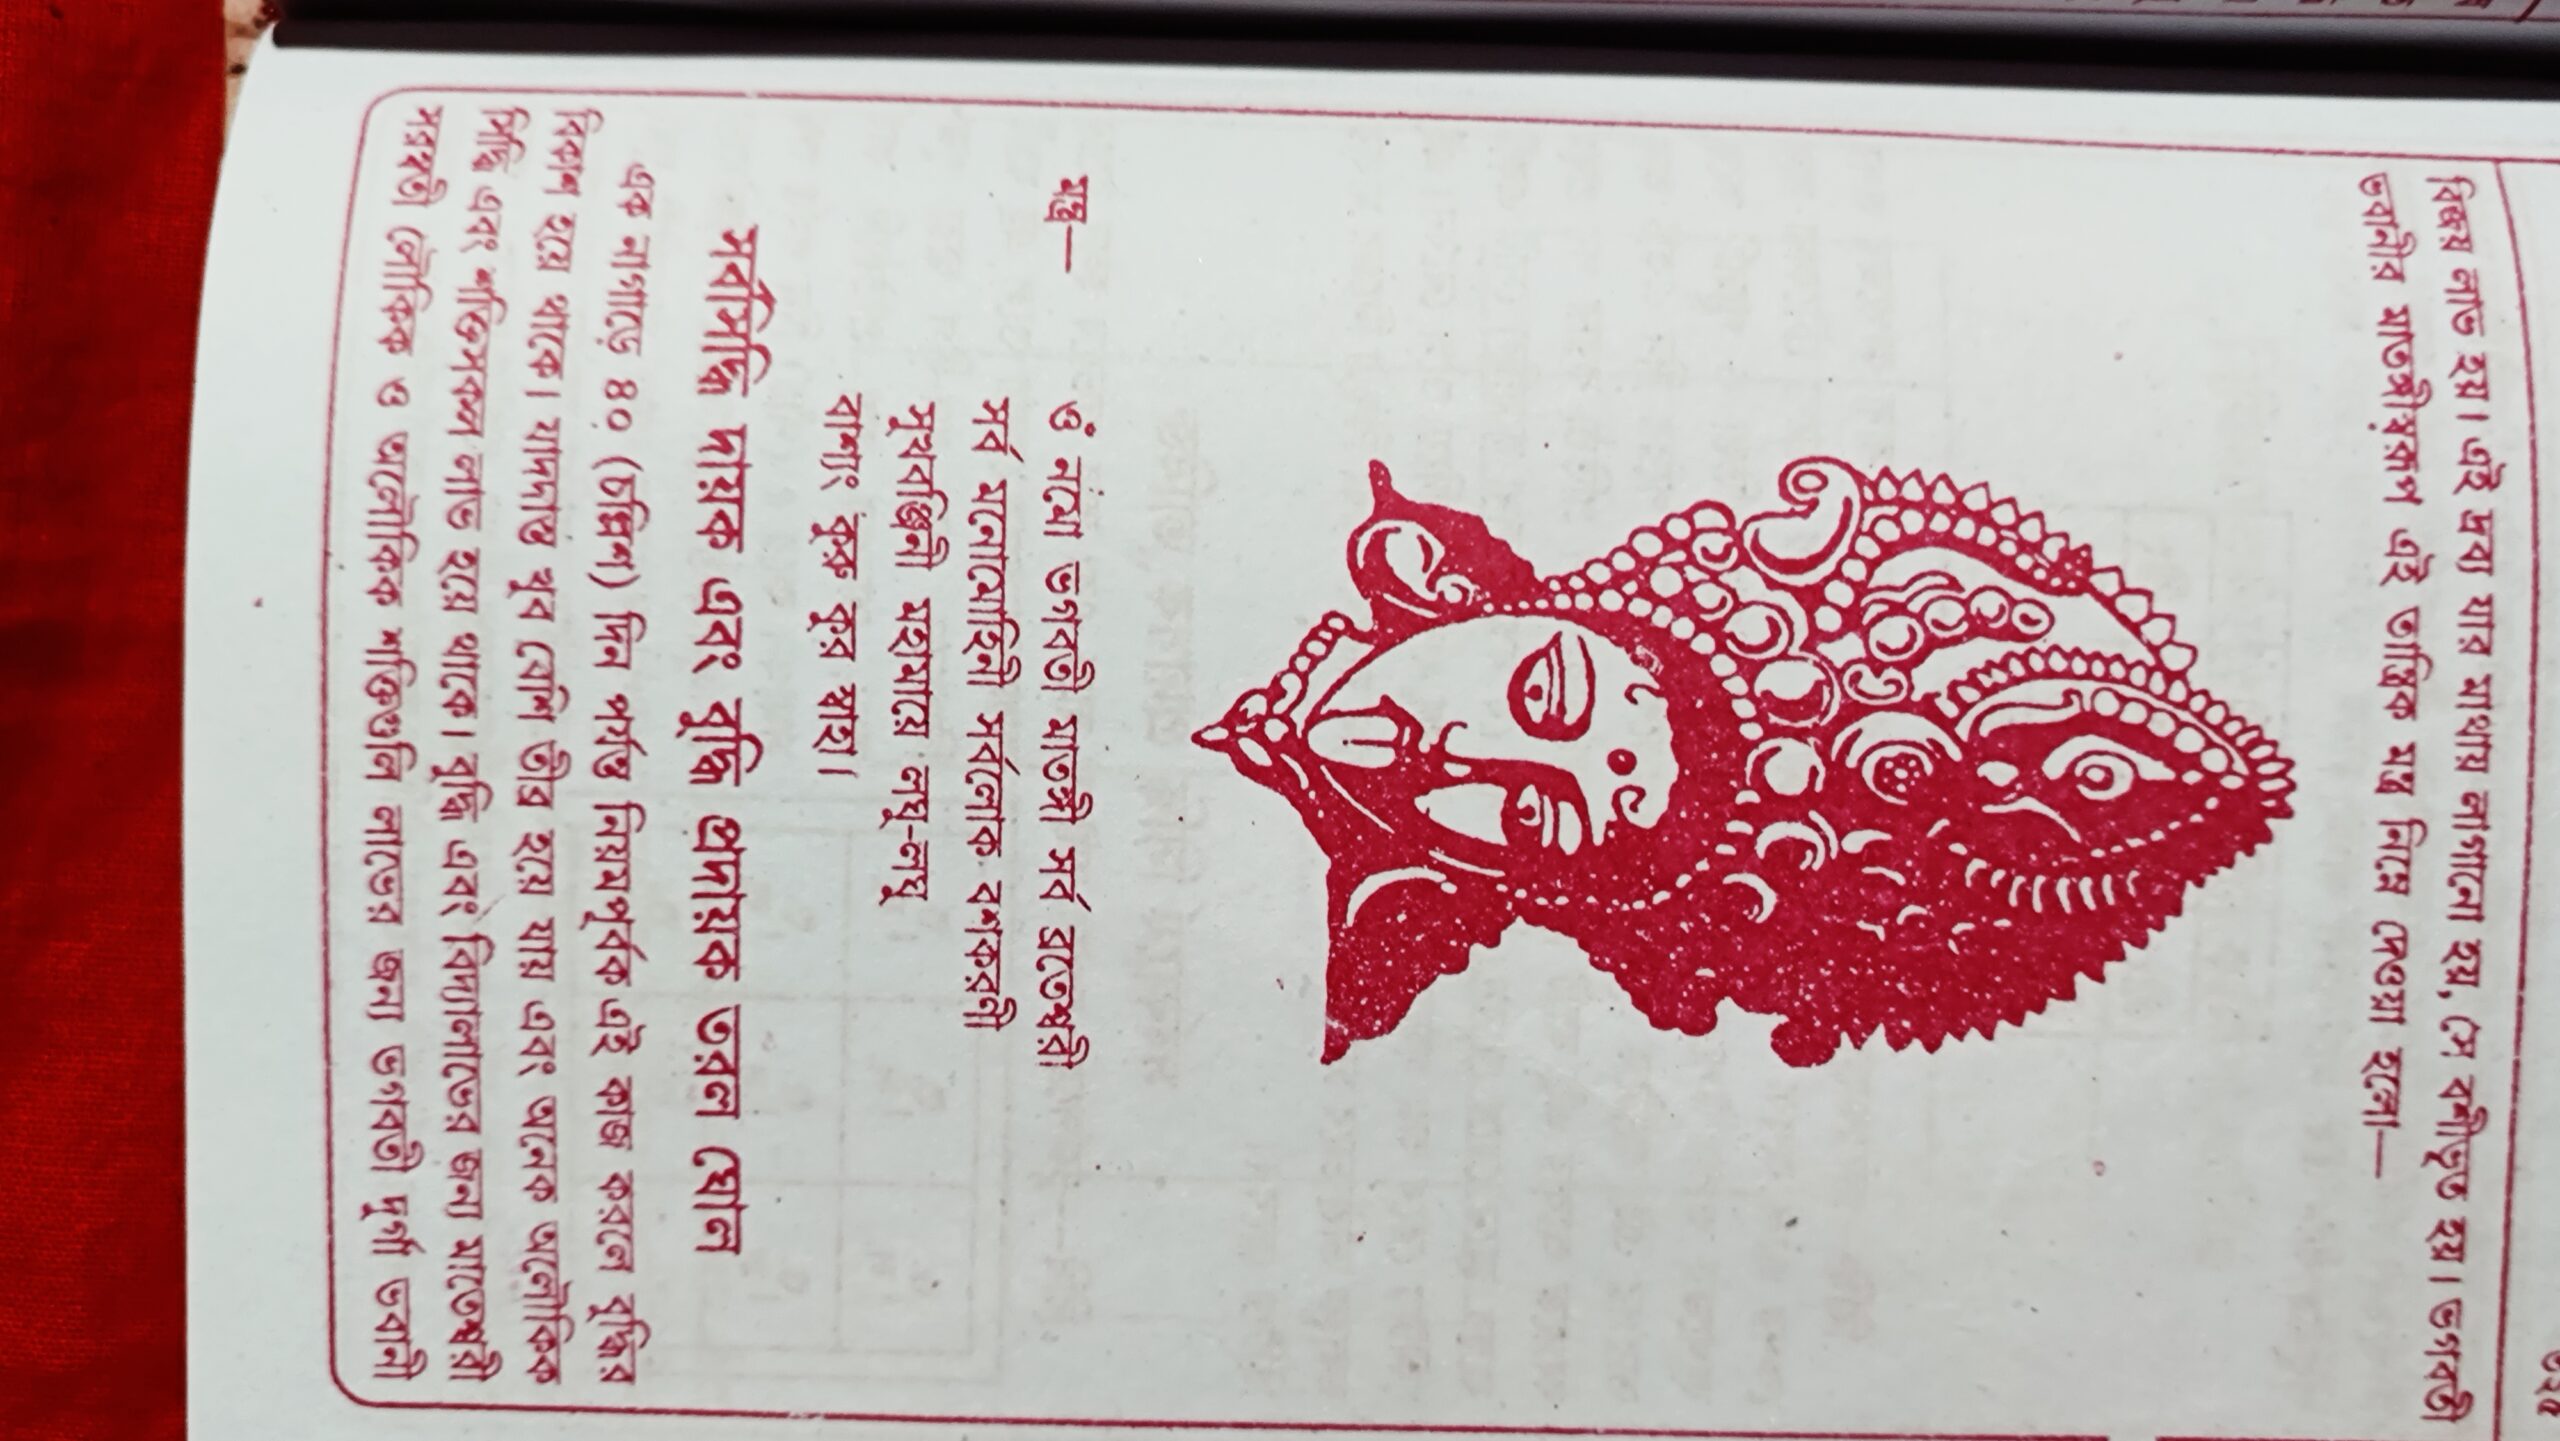 বিজয় লাভ হয়। এই দ্রব্য যার মাথায় লাগানো হয়, সে বশীভূত হয়। ভগবতী
ভবানীর মাতঙ্গীস্বরূপ এই তান্ত্রিক মন্ত্র নিম্নে দেওয়া হলো—
মন্ত্র—
ওঁ নমো ভগবতী মাতঙ্গী সর্ব মতেশ্বরী
সর্ব মনোমোহিনী সর্বলোক বশকরণী
সুখবর্জিনী মহামায়ে লঘু-লঘু
বাশ্যং কুরু কুরু স্বাহা।
সর্বসিদ্ধি দায়ক এবং বুদ্ধি প্রদায়ক তরল ঘোল
এক নাগাড়ে ৪০ (চল্লিশ) দিন পর্যন্ত নিয়মপূর্বক এই কাজ করলে বুদ্ধির
বিকাশ হয়ে থাকে। যাদদাস্ত খুব বেশি তীব্র হয়ে যায় এবং অনেক অলৌকিক
সিদ্ধি এবং শক্তিসকল লাভ হয়ে থাকে। বুদ্ধি এবং বিদ্যালাভের জন্য মাতেশ্বরী
সরস্বতী লৌকিক ও অলৌকিক শক্তিগুলি লাভের জন্য ভগবতী দুর্গা ভবানী